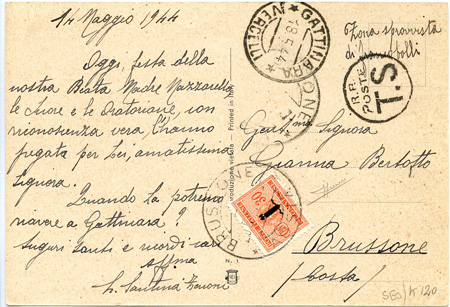 14 Maggio 1944
Oggi, festa della
nostra Beata Madre Mazzarello
le suore e le Oratoriane, con
riconoscenza vera, l'hanno
pregata per Lei, amatissima
Signora.
Quando la potremo
riavere a Gattinara?
Auguri santi e ricordi cari
aff.ma
Santina
GATTINARA
(VERCELLI)
18.5.44
Zona sprovvista
di francobolli
R.R.
POSTE
T.S
Printed in Italy
riproduzione vietata
Gent.ma Signora
Gianna Bertotto
BRUSSONE
AOSTA
30
Brussone
(Aosta)
SEG/K 120